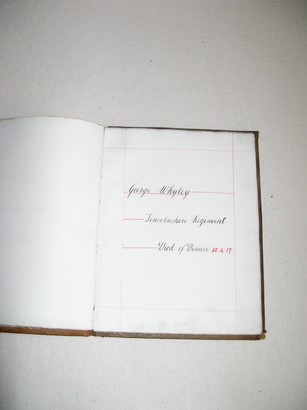 George Whyley
Lincolnshire Regiment
Died of Disease 11.4.17.